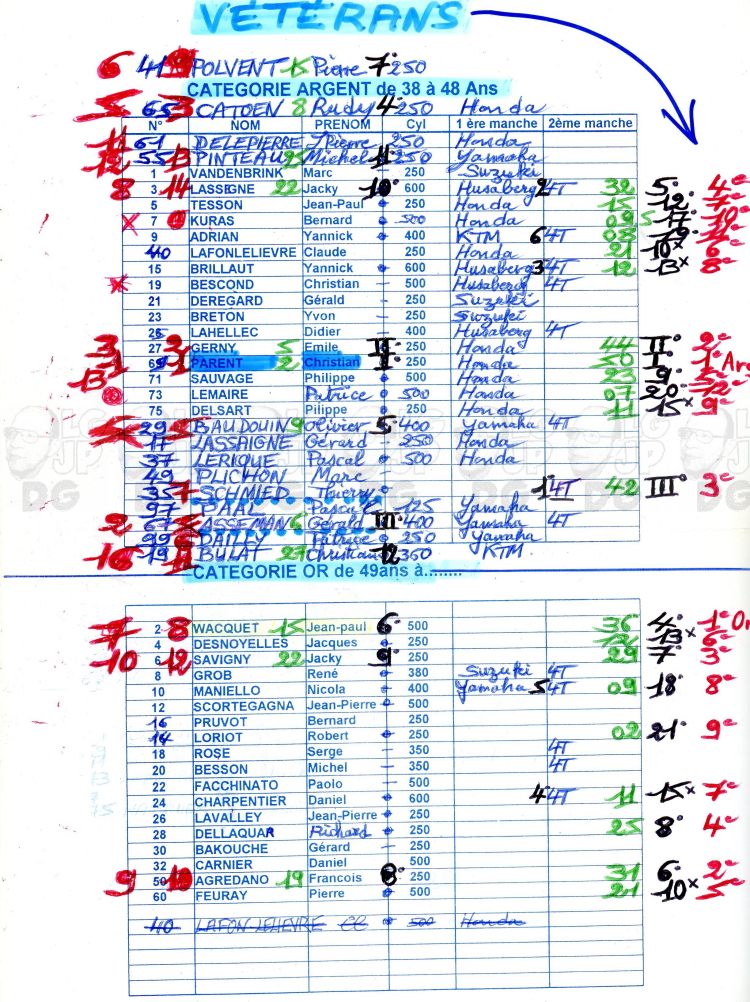 VÉTÉRANS
6 41 POLVENT 15 Pierre 7° 250
CATEGORIE ARGENT de 38 à 48 Ans
5 65 3 CATOEN 8 Rudy 4° 250 Honda
N° NOM PRENOM Cyl 1 ère manche 2ème manche
11 61 DELEPIERRE J Pierre 250 Honda
12 55 13 PINTEAU Michel 11° 250 Yamaha
1 VANDENBRINK Marc - 250 Suzuki
8 3 14 LASSIGNE 22 Jacky 10° 600 Husaberg 2 4T 32 5° 4e
5 TESSON Jean-Paul 250 Honda 15 12° 7e
X 7 KURAS Bernard 500 Honda 09 17° 10e
9 ADRIAN Yannick 400 KTM 6 4T 08 19°
40 LAFONLELIEVRE Claude 250 Honda 21 10x 6e
15 BRILLAUT Yannick 600 Husaberg 3 4T 12 13x 8e
X 19 BESCOND Christian - 500 Husaberg 4T
21 DEREGARD Gérald - 250 Suzuki
23 BRETON Yvon - 250 Suzuki
25 LAHELLEC Didier - 400 Husaberg 4T
3 27 GERNY 5 Emile II° 250 Honda 44 II° 2e
1 69 1 PARENT 2 Christian I° 250 Honda 50 I° 1e Arg
13 71 SAUVAGE Philippe 500 Honda 23 9° 5e
73 LEMAIRE Patrice 500 Honda 07 20° 12e
75 DELSART Pilippe 250 Honda 11 15x 9e
29 BAUDOUIN 9 Olivier 5° 400 Yamaha 4T
17 LASSAIGNE Gérard - 250 Honda
37 LERIQUE Pascal 500 Honda
49 PLICHON Marc -
357 SCHMIED Thierry 1 4T 42 III° 3e
97 BAAL Pascal 125 Yamaha
2 67 ASSEMAN 6 Gérald III° 400 Yamaha 4T
99 BAILLY Patrice 250 Yamaha
16 19 11 BULAT 27 Christian 12° 360 KTM
CATEGORIE OR de 49ans à........
7 2 8 WACQUET 15 Jean-paul 6° 500 36 4° 1e Or
4 DESNOYELLES Jacques 250 12 13x 6e
10 6 12 SAVIGNY 22 Jacky 9° 250 29 7° 3e
8 GROB René 380 Suzuki 4T
10 MANIELLO Nicola 400 Yamaha 5 4T 09 18° 8e
12 SCORTEGAGNA Jean-Pierre 500
16 PRUVOT Bernard 250
14 LORIOT Robert 250 02 21° 9e
18 ROSE Serge - 350 4T
20 BESSON Michel - 350 4T
22 FACCHINATO Paolo - 500
24 CHARPENTIER Daniel 600 4 4T 11 15x 7e
26 LAVALLEY Jean-Pierre 250
28 DELLAQUAR Richard 250 25 8° 4e
30 BAKOUCHE Gérard - 250
32 CARNIER Daniel 500
9 50 10 AGREDANO 19 Francois 8° 250 31 6° 2e
60 FEURAY Pierre 500 21 10x 5e
40 LAFON LELIEVRE Cl 500 Honda
LG
JP
DG